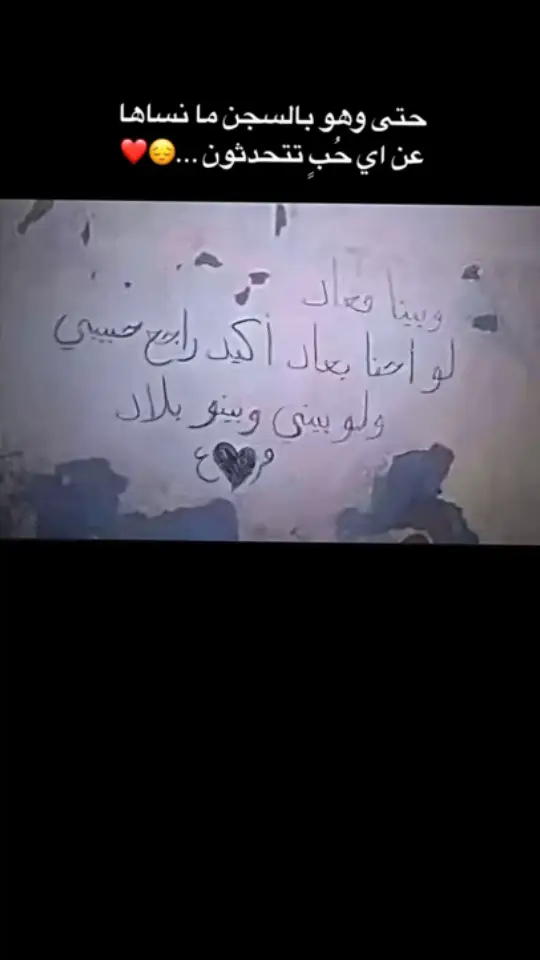 حتى وهو بالسجن ما نساها
عن اي حُبٍ تتحدثون ...😔❤️
وبينا معاد
لو احنا بعاد أكيد راجع حبيبي
ولو بيني وبينو بلاد
م🖤ع